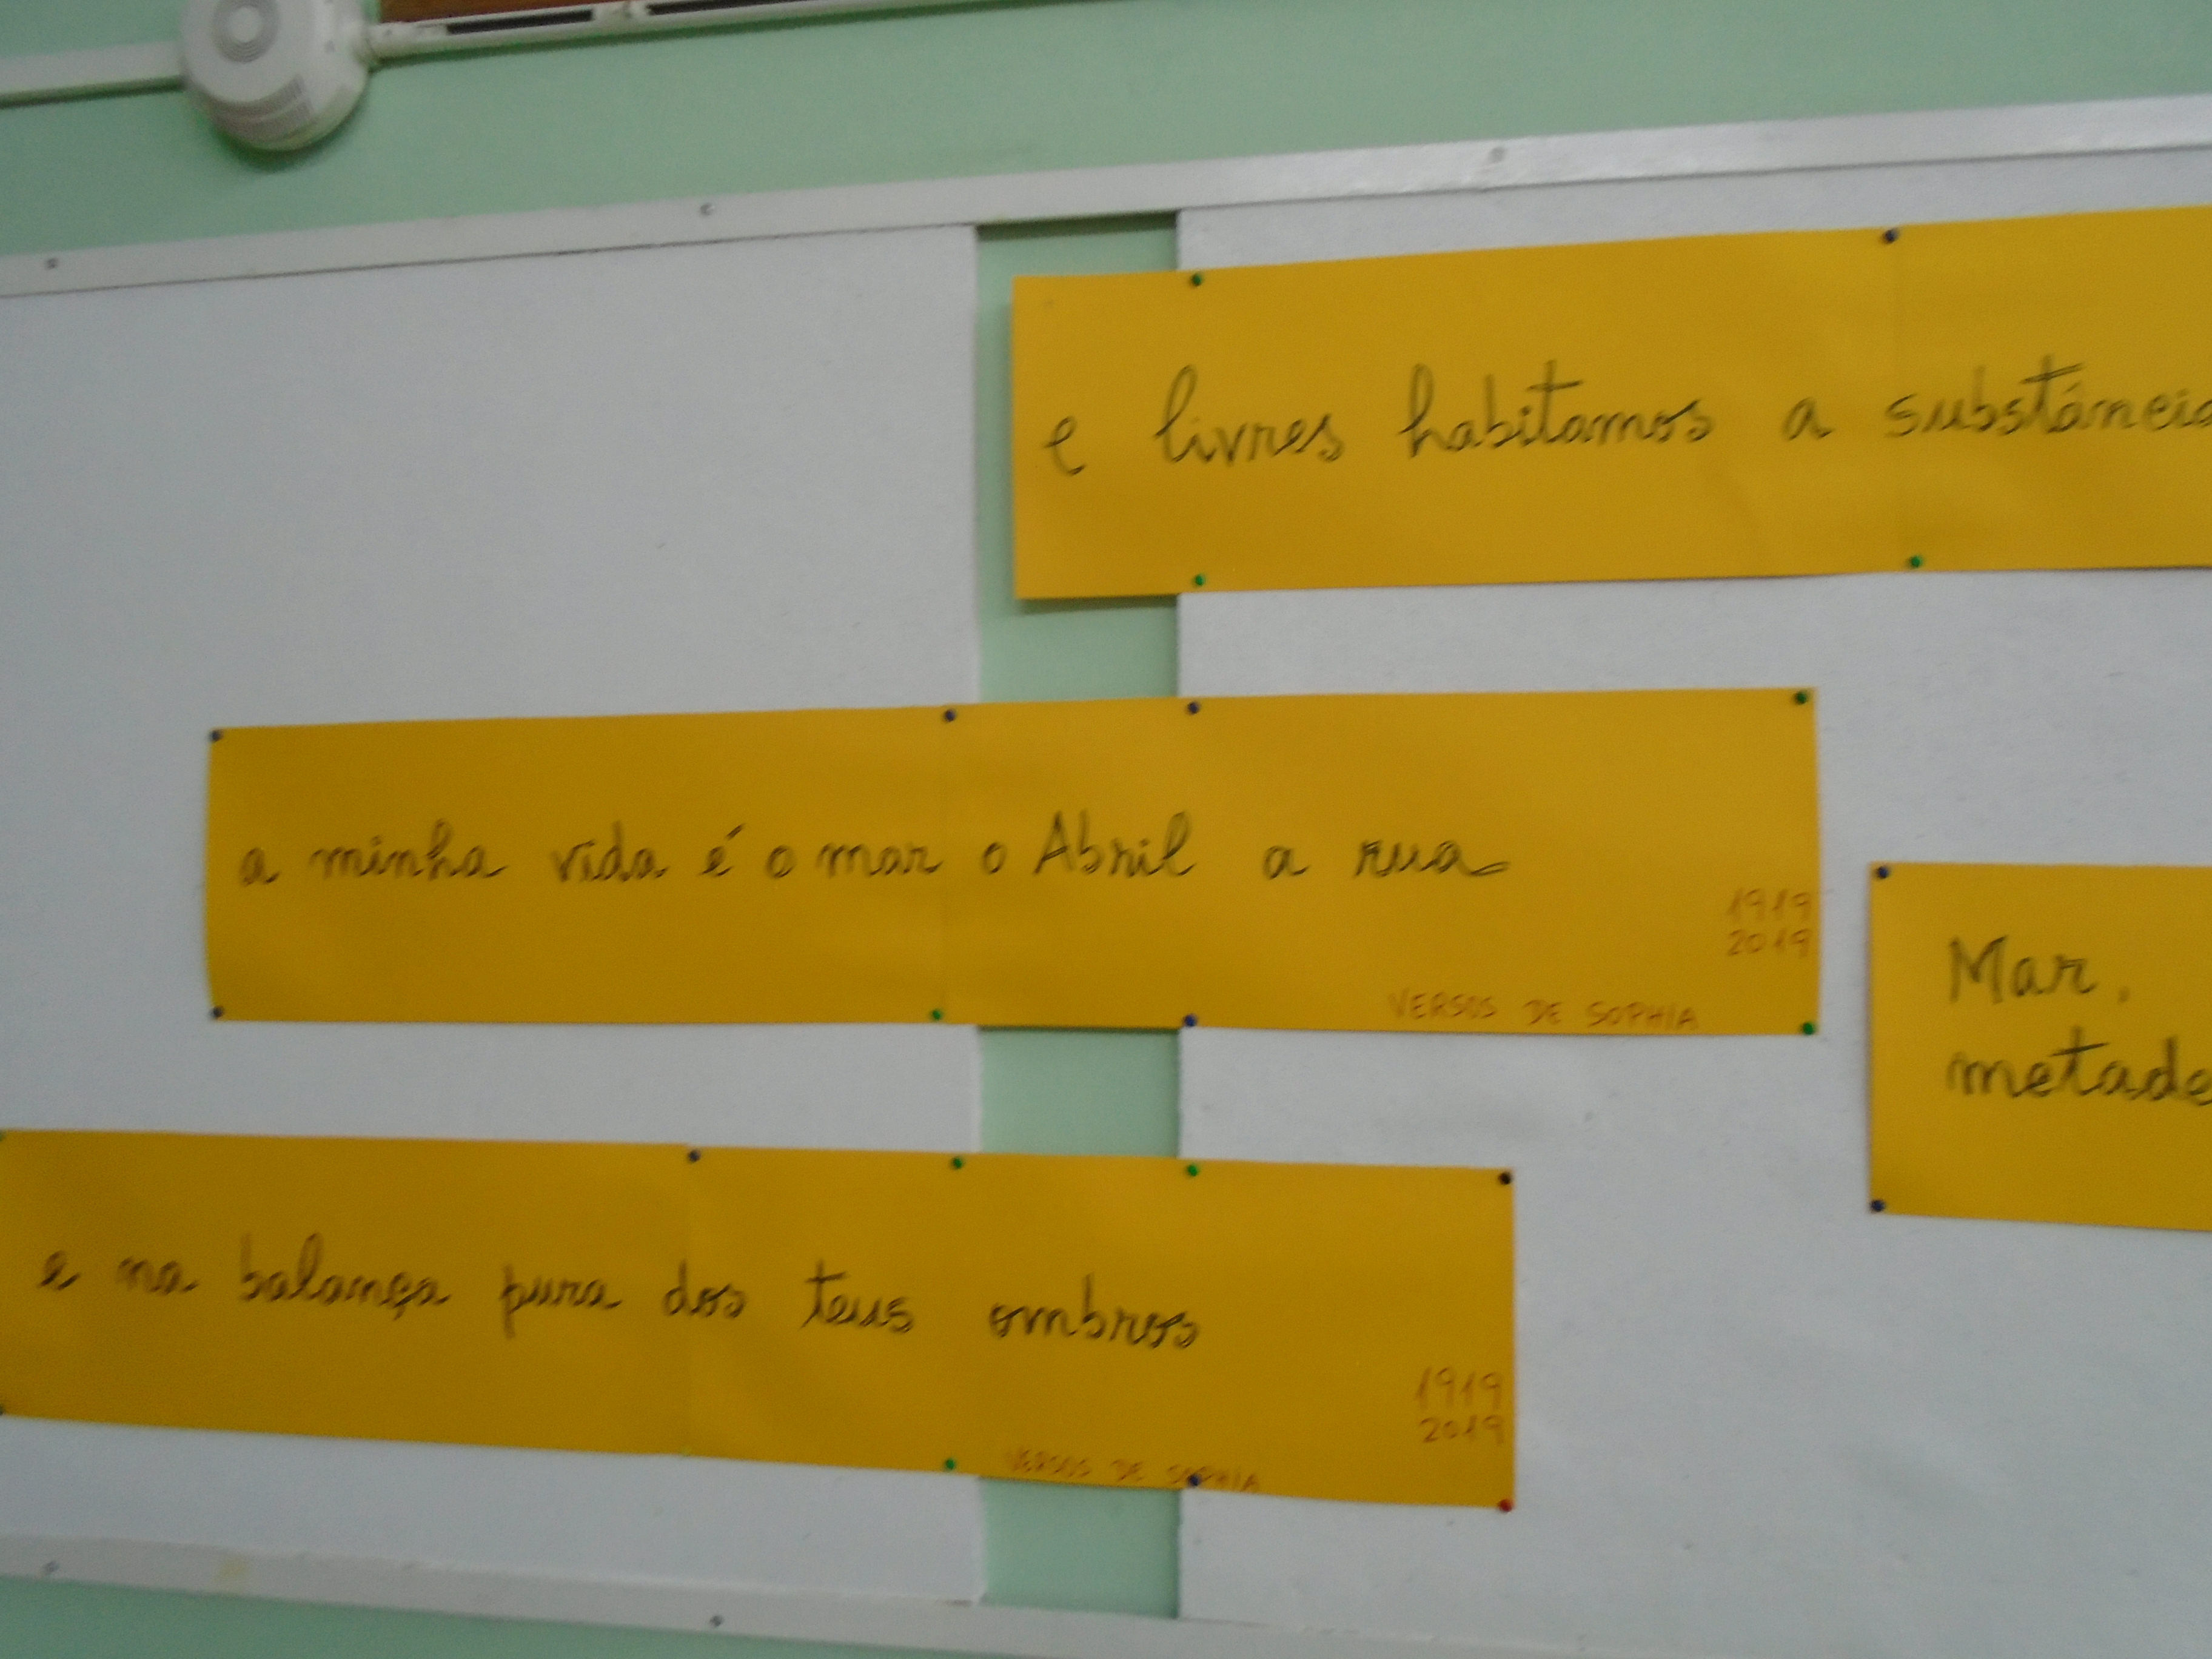 e livres habitamos a substância
a minha vida é o mar o Abril a rua
1919
2019
VERSOS DE SOPHIA
Mar,
metade
e na balança pura dos teus ombros
1919
2019
VERSOS DE SOPHIA